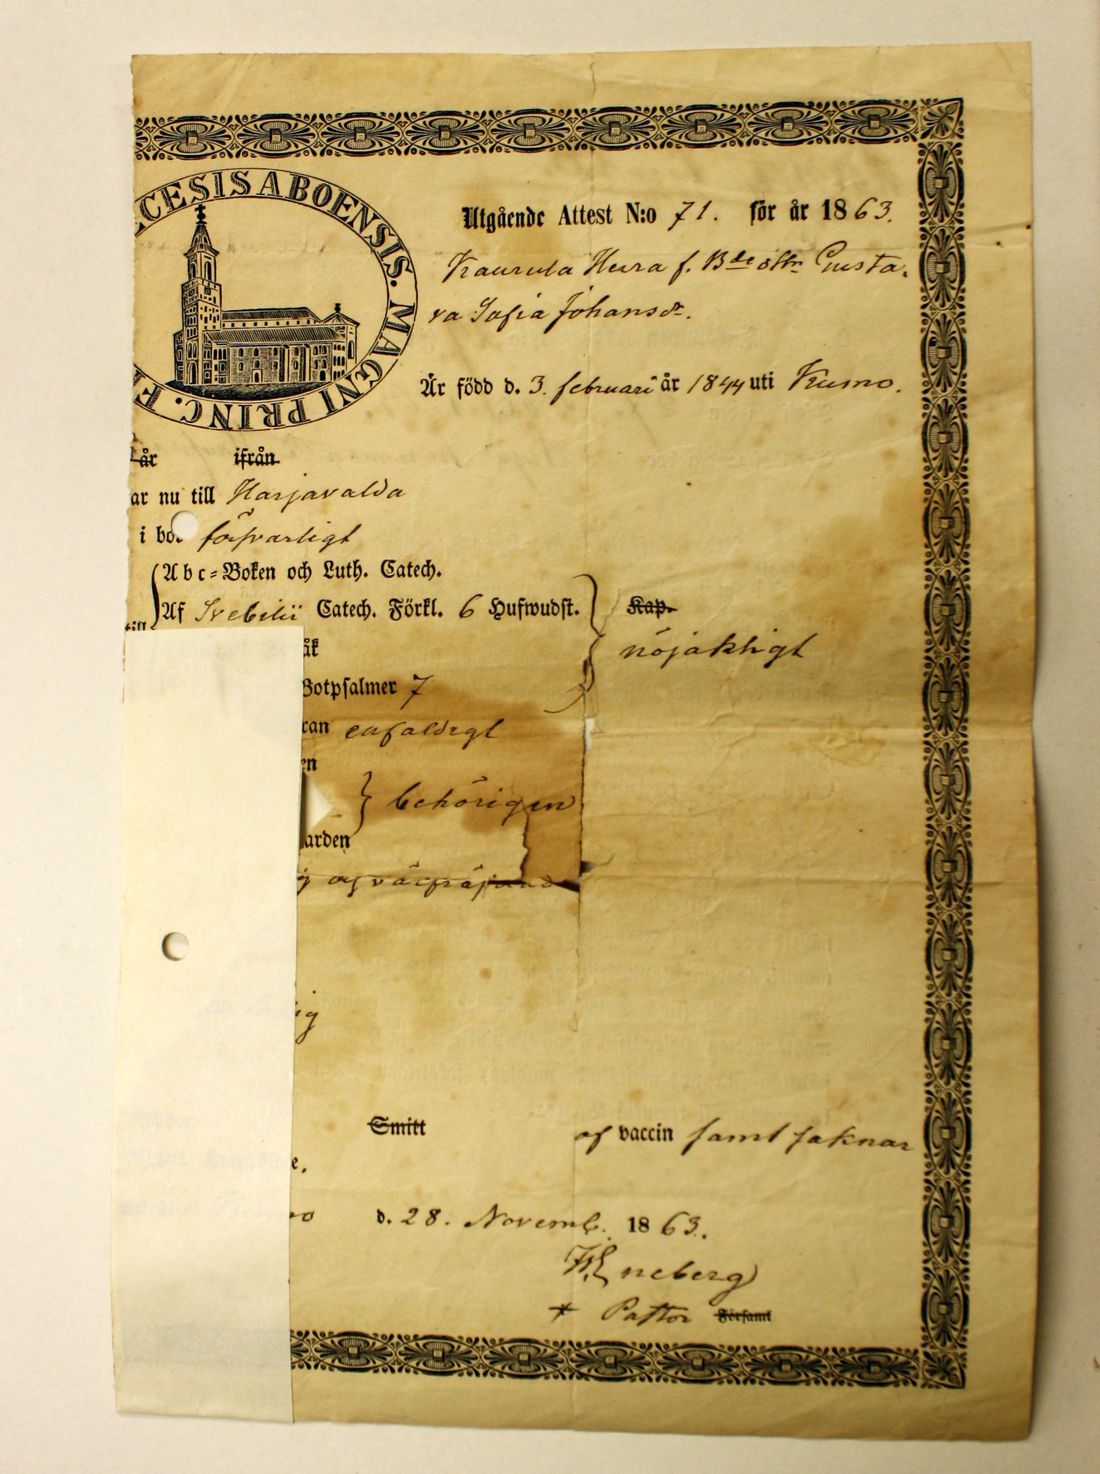 CESIS ABOENSIS. MAGNI PRINC. F
Utgående Attest N:o 71. för år 1863.
Kaurula Heira f. Bde dttr Gusta-
va Sofia Johansdr.
Är född d. 3. februari år 1844 uti Kumo.
år ifrån
ar nu till Harjavalda
i bok försvarligt
Abc=Boken och Luth. Catech.
Af Svebilii Catech. Förkl. 6 Hufwudst. Kap.
till
åk nöjaktigt
Botpsalmer 7
ran enfaldigt
en
behörigen
arden
g och
ig
Smitt af vaccin samt saknar
e.
mo d. 28. Novemb. 1863.
Eneberg
Pastor Församl